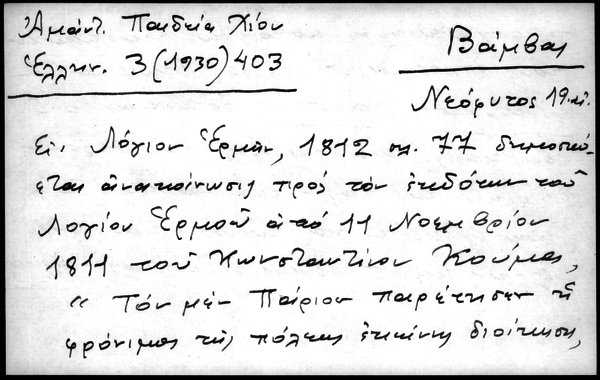 Ἀμάντ. Παιδεία Χίου
Ἑλλην. 3 (1930) 403
Βάμβας
Νεόφυτος 19 αἰ.
Εἰς Λόγιον Ἑρμῆν, 1812 σελ. 77 δημοσιεύ-
εται ἀνακοίνωσις πρὸς τὸν ἐκδότην τοῦ
Λογίου Ἑρμοῦ ἀπό 11 Νοεμβρίου
1811 τοῦ Κωνσταντίνου Κούμα,
" Τόν μέν Παίριον παρέτησεν ἡ
φρόνιμος τῆς πόλεως ἐκείνης διοίκησις,